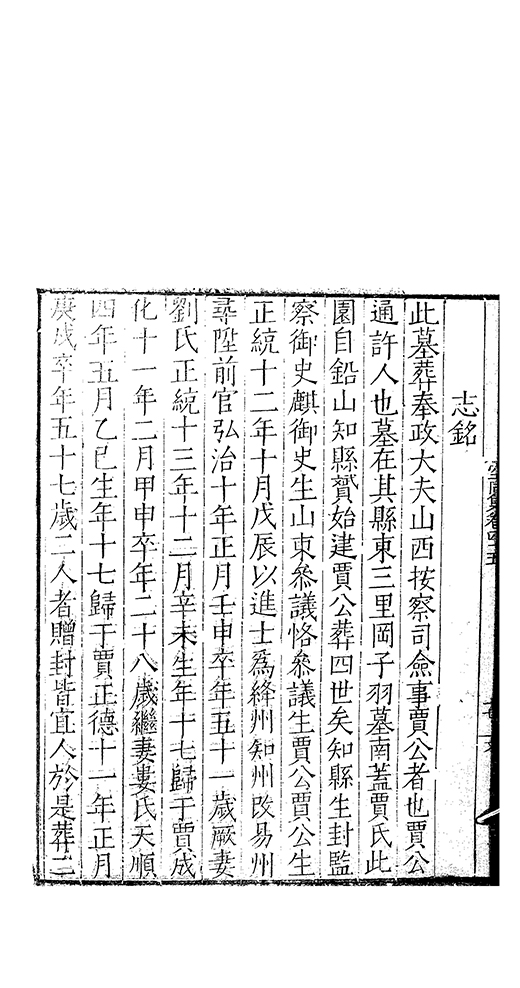 志銘
此墓葬奉政大夫山西按察司僉事賈公者也賈公
通許人也墓在其縣東三里岡子羽墓南蓋賈氏此
園自鉛山知縣贇始建賈公葬四世矣知縣生封監
察御史麒御史生山東叅議恪叅議生賈公賈公生
正統十二年十月戊辰以進士爲絳州知州改易州
尋陞前官弘治十年正月壬申卒年五十一歲厥妻
劉氏正統十三年十二月辛未生年十七歸于賈成
化十一年二月甲申卒年二十八歲繼妻婁氏天順
四年五月乙巳生年十七歸于賈正德十一年正月
庚戌卒年五十七歲二人者贈封皆宜人於是葬三